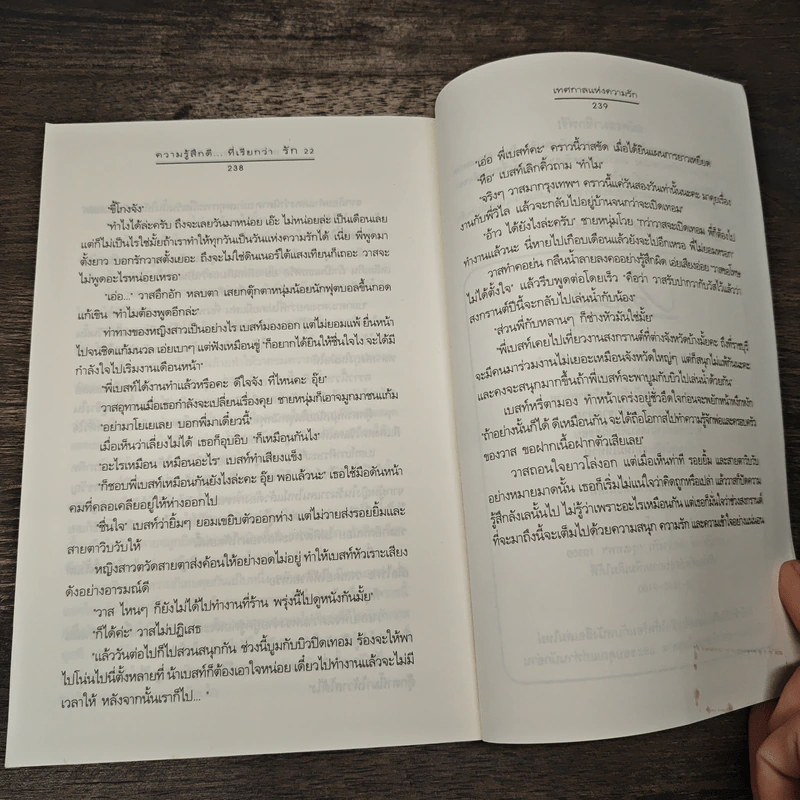 ความรู้สึกดี... ที่เรียกว่า รัก 22
238
"ขี้โกงจัง"
"ทำไงได้ล่ะครับ ถึงจะเลยวันมาหน่อย เอ๊ะ ไม่หน่อยล่ะ เป็นเดือนเลย
แต่ก็ไม่เป็นไรใช่มั้ยถ้าเราทำให้ทุกวันเป็นวันแห่งความรักได้ เนี่ย พี่พูดมา
ตั้งยาว บอกรักวาสตั้งเยอะ ถึงจะไม่ใช่ดินเนอร์ใต้แสงเทียนก็เถอะ วาสจะ
ไม่พูดอะไรหน่อยเหรอ"
"เอ่อ..." วาสอึกอัก หลบตา เสยกตุ๊กตาหนุ่มน้อยนักฟุตบอลขึ้นกอด
แก้เขิน "ทำไมต้องพูดอีกล่ะ"
ท่าทางของหญิงสาวเป็นอย่างไร เบสท์มองออก แต่ไม่ยอมแพ้ ยื่นหน้า
ไปจนชิดแก้มนวล เอ่ยเบาๆ แต่ฟังเหมือนขู่ "ก็อยากได้ยินให้ชื่นใจไง จะได้มี
กำลังใจไปเริ่มงานเดือนหน้า"
"พี่เบสท์ได้งานทำแล้วหรือคะ ดีใจจัง ที่ไหนคะ อุ๊ย"
วาสอุทานเมื่อเธอกำลังจะเปลี่ยนเรื่องคุย ชายหนุ่มก็เอาจมูกมาชนแก้ม
"อย่ามาโยเยเลย บอกพี่มาเดี๋ยวนี้"
เมื่อเห็นว่าเลี่ยงไม่ได้ เธอก็อุบอิบ "ก็เหมือนกันไง"
"อะไรเหมือน เหมือนอะไร" เบสท์ทำเสียงแข็ง
"ก็ชอบพี่เบสท์เหมือนกันยังไงล่ะคะ อุ๊ย พอแล้วนะ" เธอใช้มือดันหน้า
คมที่คลอเคลียอยู่ให้ห่างออกไป
"ชื่นใจ" เบสท์ว่ายิ้มๆ ยอมเขยิบตัวออกห่าง แต่ไม่วายส่งรอยยิ้มและ
สายตาวิบวับให้
หญิงสาวตวัดสายตาส่งค้อนให้อย่างอดไม่อยู่ ทำให้เบสท์หัวเราะเสียง
ดังอย่างอารมณ์ดี
"วาส ไหนๆ ก็ยังไม่ได้ไปทำงานที่ร้าน พรุ่งนี้ไปดูหนังกันมั้ย"
"ก็ได้ค่ะ" วาสไม่ปฏิเสธ
"แล้ววันต่อไปก็ไปสวนสนุกกัน ช่วงนี้บูมกับบิวปิดเทอม ร้องจะให้พา
ไปโน่นไปนี่ตั้งหลายที่ น้าเบสท์ก็ต้องเอาใจหน่อย เดี๋ยวไปทำงานแล้วจะไม่มี
เวลาให้ หลังจากนั้นเราก็ไป... "
เทศกาลแห่งความรัก
239
"เอ่อ พี่เบสท์คะ" คราวนี้วาสขัด เมื่อได้ยินแผนการยาวเหยียด
"หือ" เบสท์เลิกคิ้วถาม "ทำไม"
"จริงๆ วาสมากรุงเทพฯ คราวนี้แค่วันสองวันเท่านั้นนะคะ มาคุยเรื่อง
งานกับพี่วิไล แล้วจะกลับไปอยู่บ้านจนกว่าจะเปิดเทอม"
"อ้าว ได้ยังไงล่ะครับ" ชายหนุ่มโวย "กว่าวาสจะเปิดเทอม พี่ก็ต้องไป
ทำงานแล้วนะ นี่หายไปเกือบเดือนแล้วยังจะไปอีกเหรอ พี่ไม่ยอมหรอก"
วาสทำคอย่น กลืนน้ำลายลงคออย่างรู้สึกผิด เอ่ยเสียงอ่อย "วาสขอโทษ
ไม่ได้ตั้งใจ" แล้วรีบพูดต่อโดยเร็ว "คือว่า วาสรับปากกับวัสไว้แล้วว่า
สงกรานต์ปีนี้จะกลับไปเล่นน้ำกับน้อง"
"ส่วนพี่กับหลานๆ ก็ช่างหัวมันใช่มั้ย"
"พี่เบสท์เคยไปเที่ยวงานสงกรานต์ที่ต่างจังหวัดบ้างมั้ยคะ ถึงที่ราชบุรี
จะมีคนมาร่วมงานไม่เยอะเหมือนจังหวัดใหญ่ๆ แต่ก็สนุกไม่แพ้กันนะคะ
และคงจะสนุกมากขึ้นถ้าพี่เบสท์จะพาบูมกับบิวไปเล่นน้ำด้วยกัน"
เบสท์หรี่ตามอง ทำหน้าเคร่งอยู่ชั่วอึดใจก่อนจะพยักหน้าหงึกหงัก
"ถ้าอย่างนั้นก็ได้ ดีเหมือนกัน จะได้ถือโอกาสไปทำความรู้จักพ่อและครอบครัว
ของวาส ขอฝากเนื้อฝากตัวเสียเลย"
วาสถอนใจยาวโล่งอก แต่เมื่อเห็นท่าที รอยยิ้ม และสายตาวิบวับ
อย่างหมายมาดนั้น เธอก็เริ่มไม่แน่ใจว่าคิดถูกหรือเปล่า แล้ววาสก็ปัดความ
รู้สึกลังเลนั้นไป ไม่รู้ว่าเพราะอะไรเหมือนกัน แต่เธอก็มั่นใจว่าช่วงสงกรานต์
ที่จะมาถึงนี้จะเต็มไปด้วยความสนุก ความรัก และความเข้าใจอย่างแน่นอน